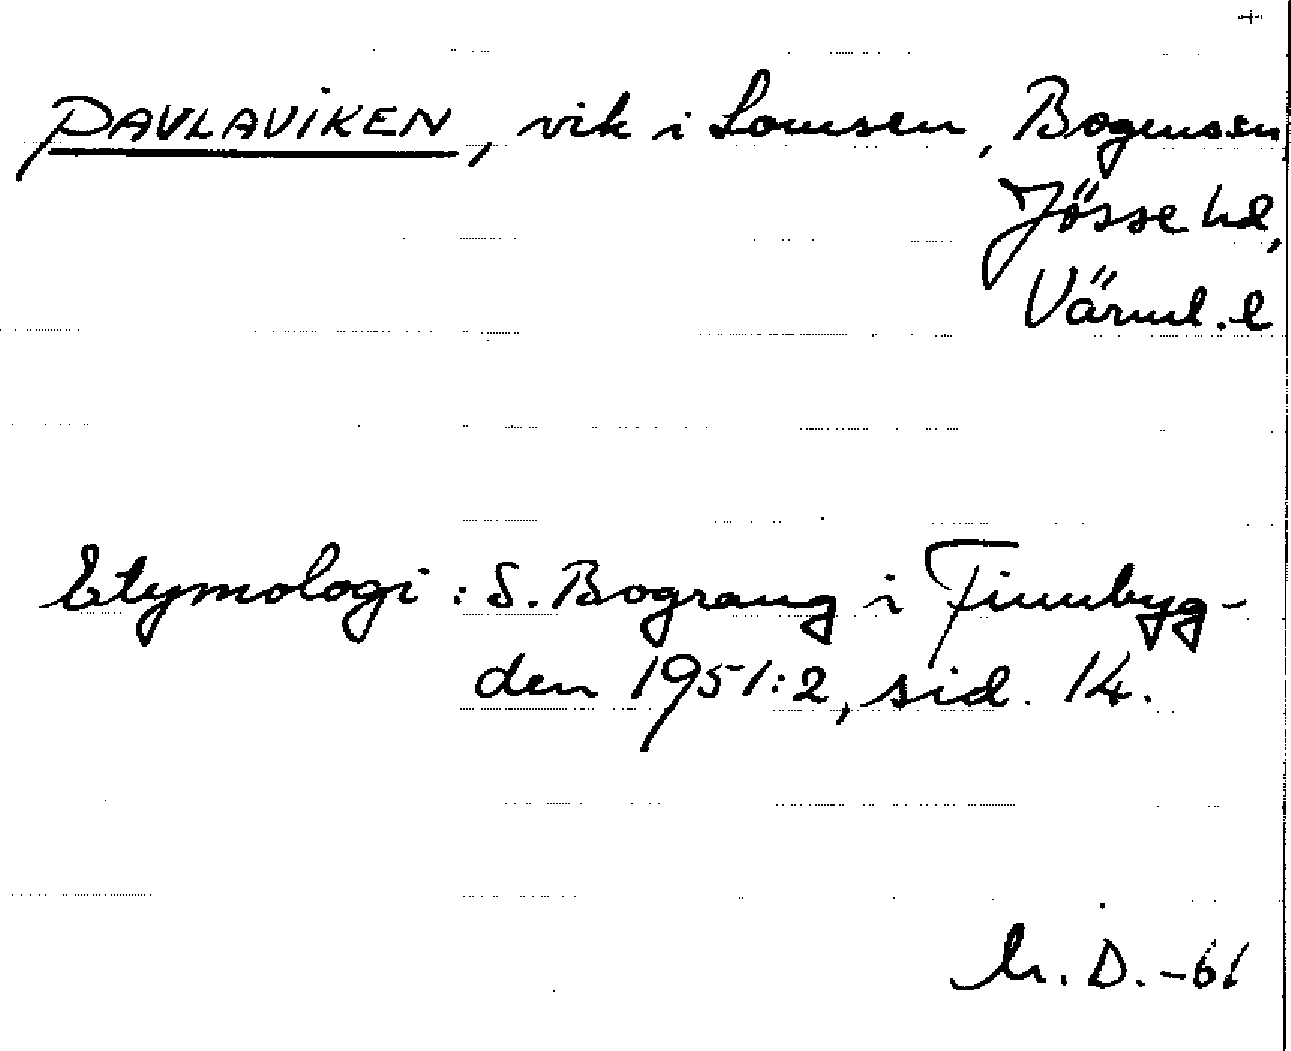 PAVLAVIKEN, vik i Lomsen, Bogens sn
Jösse hd,
Värml. l
Etymologi: S. Bograng i Finnbyg-
den 1951:2, sid. 14.
D. -61